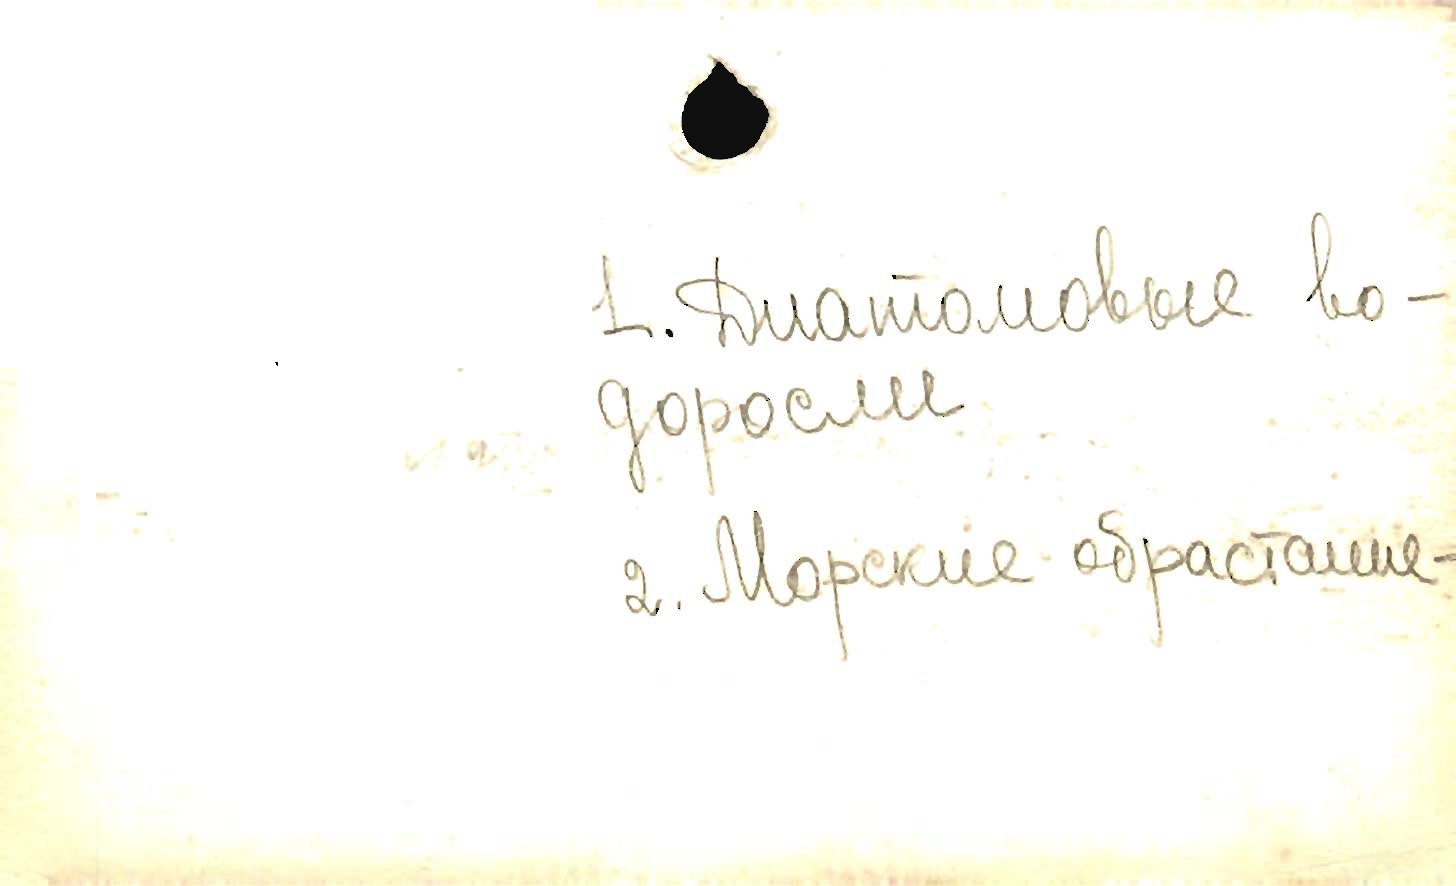 1. Диатомовые во-
доросли
2. Морские обрастание-